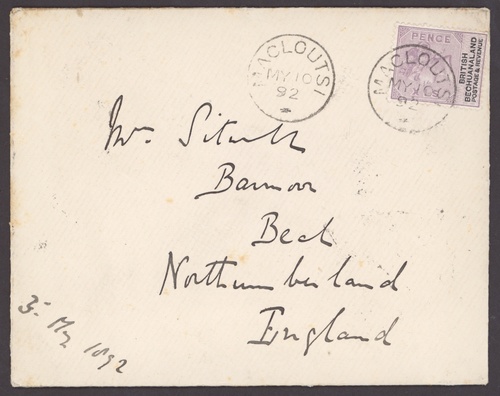 MACLOUTSI
MY 10
92
MACLOUTSI
MY 10
92
PENCE
BRITISH
BECHUANALAND
POSTAGE & REVENUE
Mr. Sitwell
Barmoor
Beal
Northumberland
England
May 1892